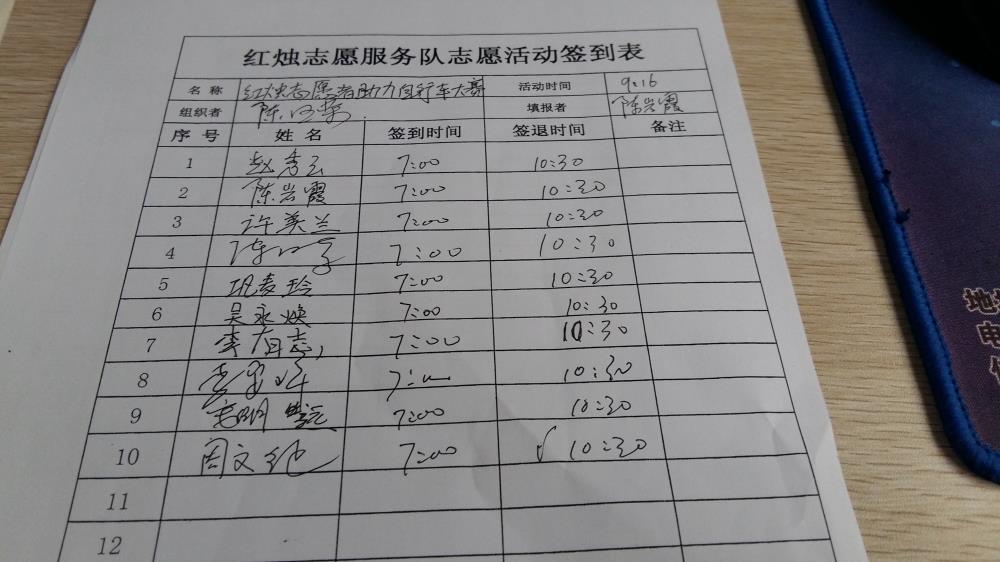 红烛志愿服务队志愿活动签到表
名称 红烛志愿者助力自行车大赛 活动时间 9.16
组织者 陈 填报者 陈岩霞
序号 姓名 签到时间 签退时间 备注
1 赵秀云 7:00 10:30
2 陈岩霞 7:00 10:30
3 许美兰 7:00 10:30
4 7:00 10:30
5 巩麦玲 7:00 10:30
6 吴永焕 7:00 10:30
7 李有志 7:00 10:30
8 7:00 10:30
9 7:00 10:30
10 周文纪 7:00 √ 10:30
11
12
地
电